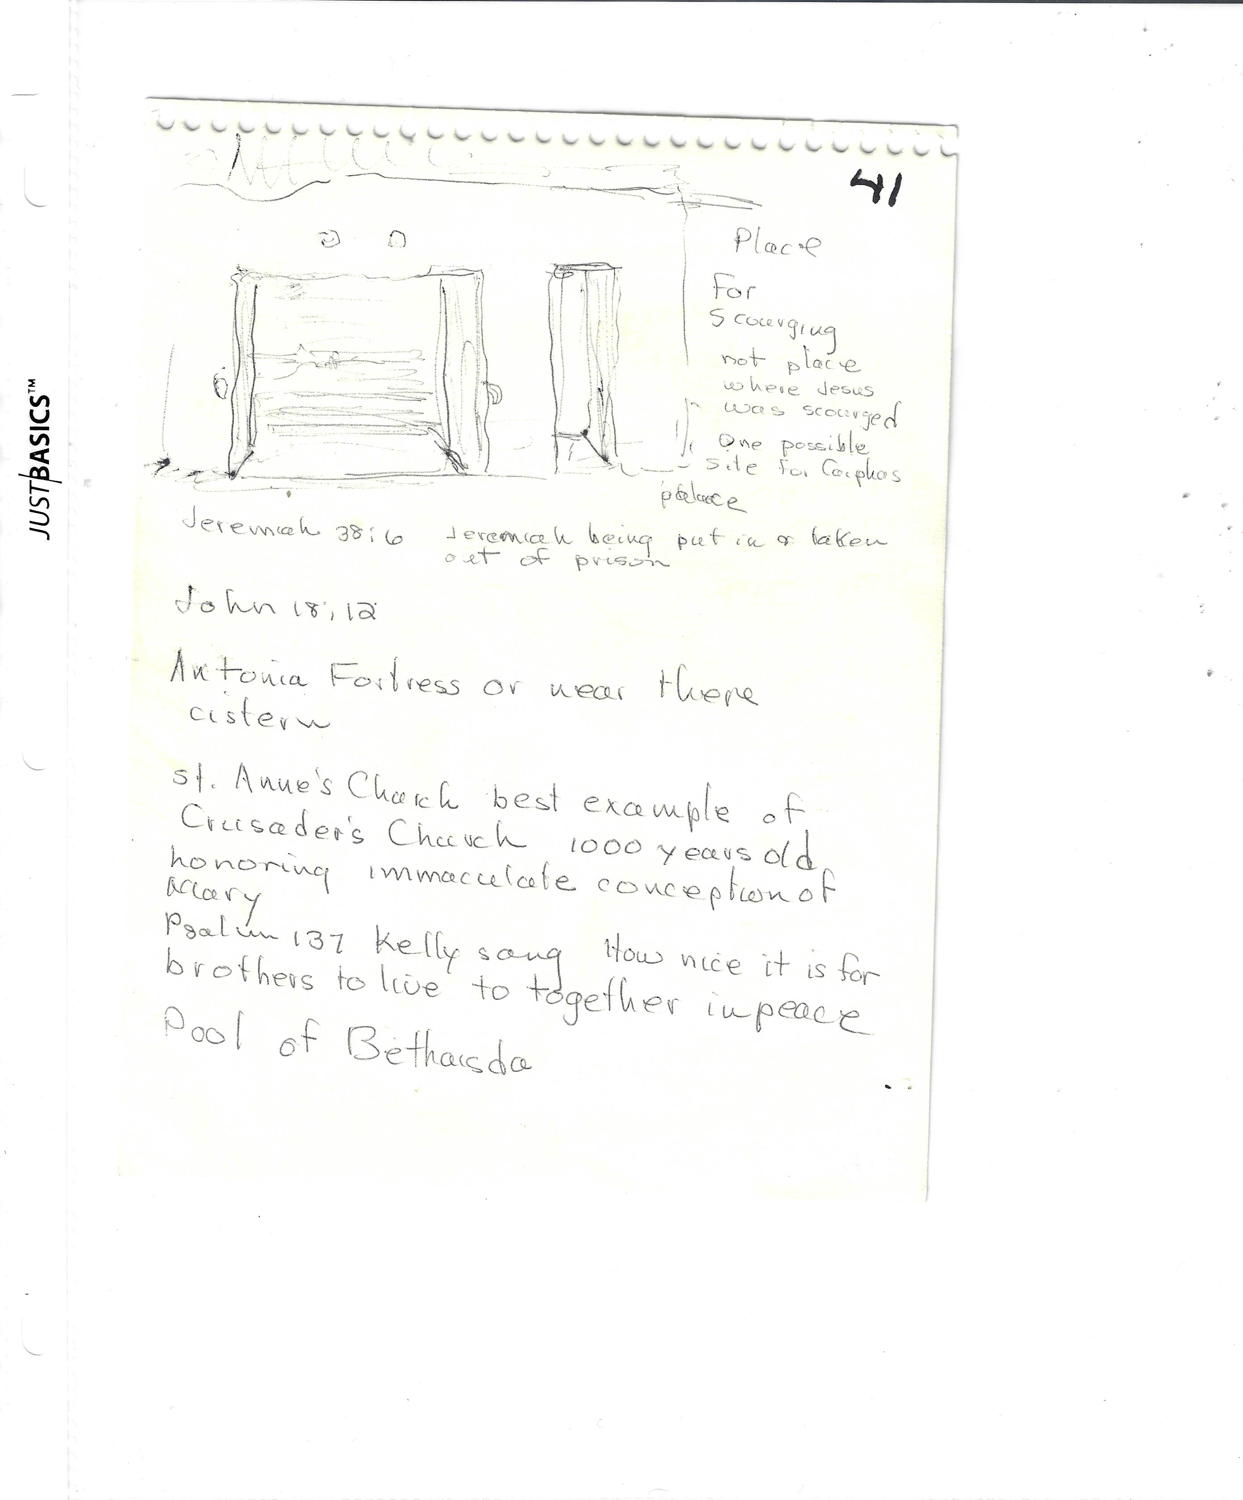 41
Place
For
Scourging
not place
where Jesus
was scourged
One possible
Site for Caiphas
palace
Jeremiah 38:6 Jeremiah being put in or taken
out of prison
John 18:12
Antonia Fortress or near there
cistern
St. Anne's Church best example of
Crusader's Church 1000 years old
honoring immaculate conception of
Mary
Psalm 137 Kelly sang How nice it is for
brothers to live to together in peace
Pool of Bethaisda
JUST BASICS™